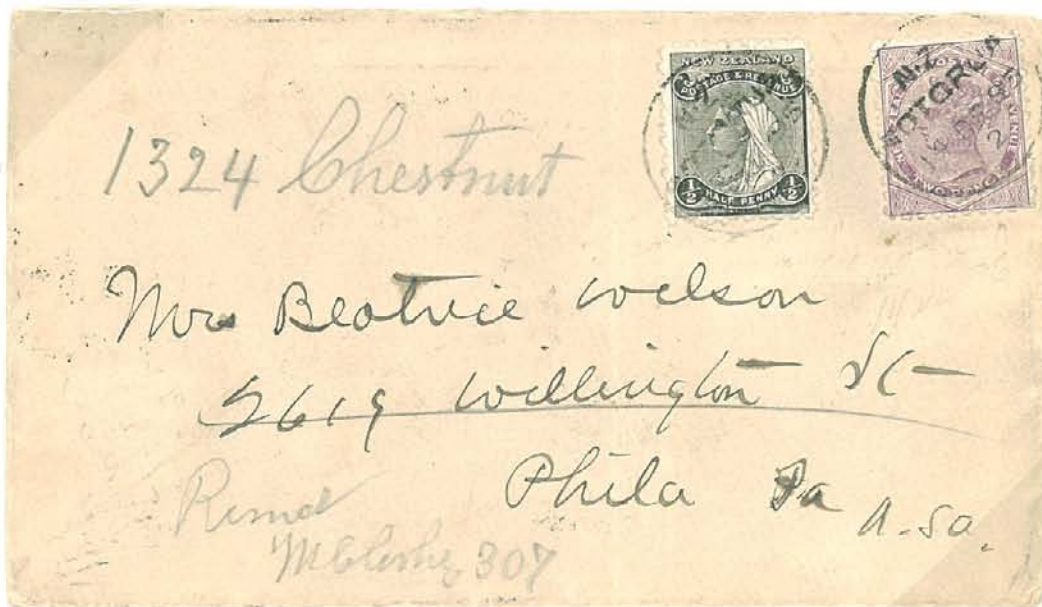 NEW ZEALAND
POSTAGE & REVENUE
1/2 HALF PENNY 1/2
N.Z
ROTORUA
1324 Chestnut
Mrs Beatrice Wilson
2619 Willington St
Phila Pa
U.Sa.
307